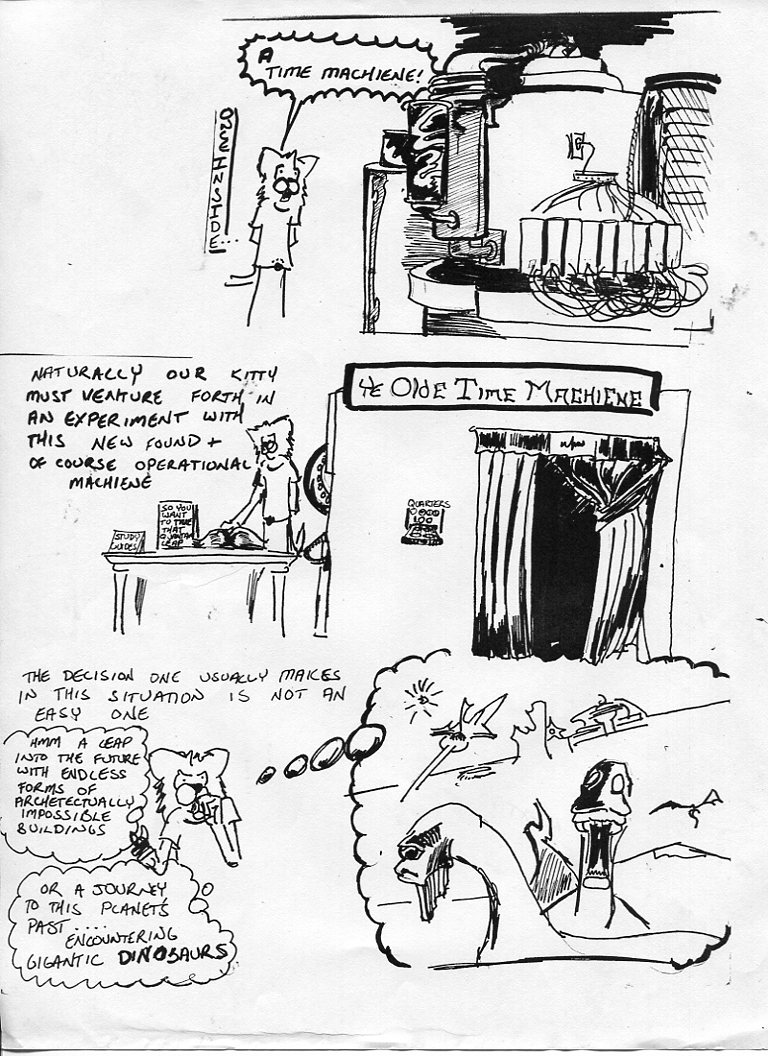 A
TIME MACHIENE!
INSIDE...
NATURALLY OUR KITTY
MUST VENTURE FORTH IN
AN EXPERIMENT WITH
THIS NEW FOUND +
OF COURSE OPERATIONAL
MACHIENE
YE OLDE TIME MACHIENE
QUARTERS
STUDY
GUIDES
SO YOU
WANT
TO TAKE
THAT
QUANTUM
LEAP
THE DECISION ONE USUALLY MAKES
IN THIS SITUATION IS NOT AN
EASY ONE
HMM A LEAP
INTO THE FUTURE
WITH ENDLESS
FORMS OF
ARCHETECTUALLY
IMPOSSIBLE
BUILDINGS
OR A JOURNEY
TO THIS PLANETS
PAST ....
ENCOUNTERING
GIGANTIC DINOSAURS